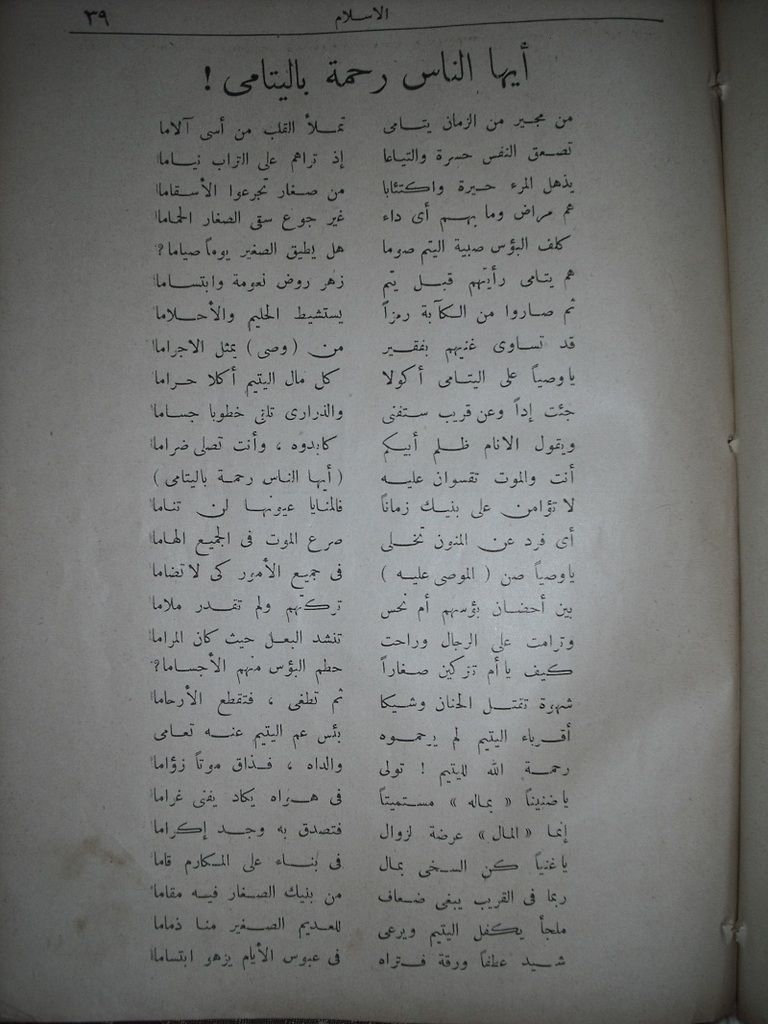 ٣٩ الاسلام
أيها الناس رحمة باليتامى !
من مجير من الزمان يتامى تملأ القلب من أسى آلاما
تصعق النفس حسرة والتياعا إذ تراهم على التراب نياما
يذهل المرء حيرة واكتئابا من صغار تجرعوا الأسقاما
هم مراض وما بهم أى داء غير جوع سقى الصغار الحماما
كلف البؤس صبية اليتم صوما هل يطيق الصغير يوماً صياما ؟
هم يتامى رأيتهم قبل يتم زهر روض نعومة وابتساما
ثم صاروا من الكآبة رمزاً يستشيط الحليم والأحلاما
قد تساوى غنيهم بفقير من ( وصى ) يمثل الاجراما
ياوصياً على اليتامى أكولا كل مال اليتيم أكلا حراما
جئت إداً وعن قريب ستفنى والذرارى تلقى خطوبا جساما
ويقول الانام ظلم أبيكم كابدوه ، وأنت تصلى ضراما
أنت والموت تقسوان عليه ( أيها الناس رحمة باليتامى )
لا تؤامن على بنيك زماناً فالمنايا عيونها لن تناما
أى فرد عن المنون تخلى صرع الموت فى الجميع الهاما
ياوصياً صن ( الموصى عليه ) فى جميع الأمور كى لا تضاما
بين أحضان بؤسهم أم نحس تركتهم ولم تقدر ملاما
وترامت على الرجال وراحت تنشد البعل حيث كان المراما
كيف ياأم تتركين صغاراً حطم البؤس منهم الأجساما ؟
شهوة تقتل الحنان وشيكا ثم تطغى ، فتقطع الأرحاما
أقرباء اليتيم لم يرحموه بئس عم اليتيم عنه تعامى
رحمة الله لليتيم ! تولى والداه ، فذاق موتاً زؤاما
ياضنيناً « بماله » مستميتاً فى هواه يكاد يفنى غراما
إنما « المال » عرضة لزوال فتصدق به وجد إكراما
ياغنياً كن السخى بمال فى بناء على المكارم قاما
ربما فى القريب يبغى ضعاف من بنيك الصغار فيه مقاما
ملجأ يكفل اليتيم ويرعى للعديم الصغير منا ذماما
شيد عطفاً ورقة فتراه فى عبوس الأيام يزهو ابتساما